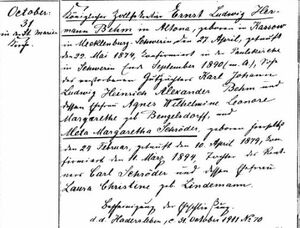 October
31
in d. St. Marien
Königlicher Zollsekretär Ernst Ludwig Her-
mann Behm in Altona, geboren in Rassow
in Mecklenburg Schwerin den 27 April, getauft
den 22. Mai 1874, confirmirt in d. Paulskirche
in Schwerin September 1890 (m. A.), Sohn
des verstorbenen Karl Johann
Ludwig Heinrich Alexander Behm und
dessen Ehefrau Agnes Wilhelmine Leonore
Margarethe geb. Bengelsdorff, und
Meta Margaretha Schröder, geboren
den 24 Februar, getauft den 10. April 1879, con-
firmirt den 11. März 1894, Tochter des Rent-
ners Carl Schröder und dessen Ehefrau
Laura Christine geb. Lindemann.
Bescheinigung der Eheschließung
d. d. Hadersleben, c. 31. October 1911 No 70